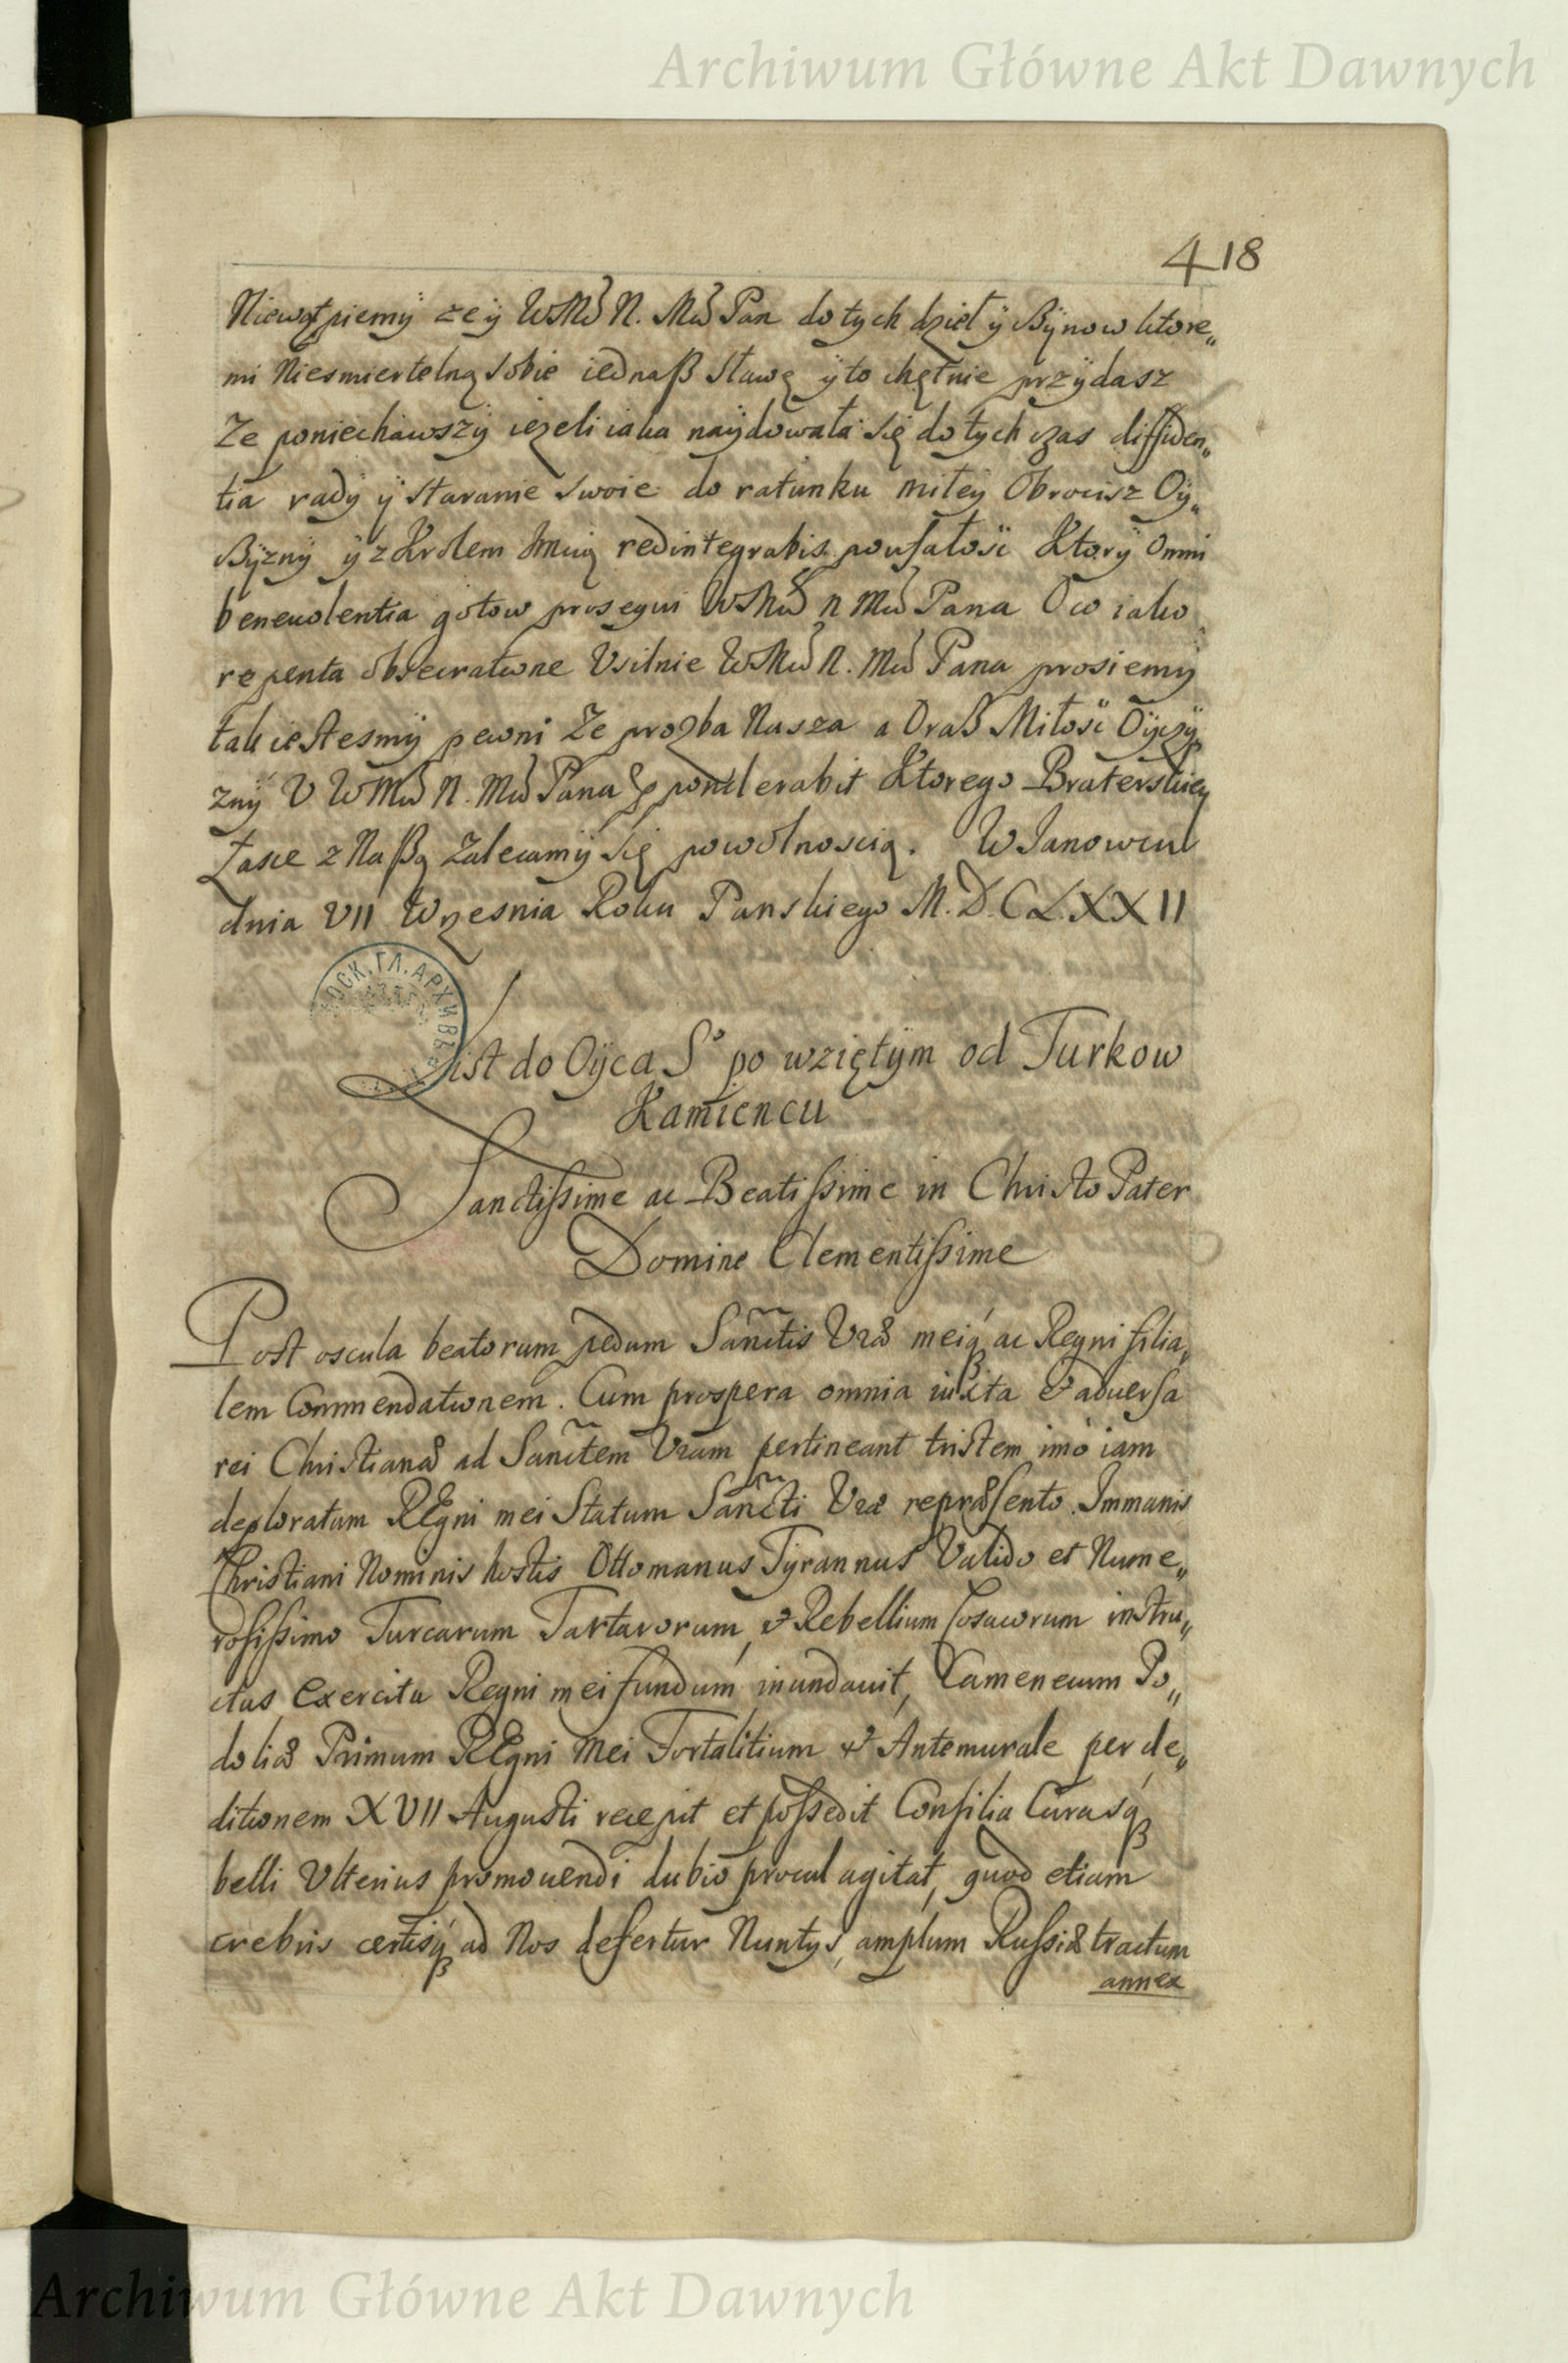 Archiwum Główne Akt Dawnych
418
Niewątpiemÿ ze ÿ WMć N. Mć Pan do tych dzieł ÿ Czÿnow ktore„
mi Niesmiertelną sobie iednaß Sławę ÿ to chętnie przÿdasz
Ze poniechawszÿ iezeli iaka naÿdowała się do tych czas diffiden„
tia radÿ ÿ staranie swoie do ratunku miłeÿ Obrocisz Oÿ„
czÿznÿ ÿ z Krolem Jmcią redintegrabis poufałosc Ktorÿ Omni
beneuolentia gotow prosequi WMć N Mć Pana O co iako
repenta obsecratione Vsilnie WMć N. Mć Pana prosiemÿ
tak iestesmÿ pewni Ze prozba Nasza a Oraß Miłosc Oÿczÿ
znÿ V WMć N. Mć Pana p̱ponderabit Ktorego Braterskieÿ
Łasce z Naßą Zalecamÿ się powolnoscią. W Janowcu
dnia VII Wrzesnia Roku Panskiego M.D.C.LXXII
List do Oÿca S° po wziętÿm od Turkow
Kamiencu
Sanctissime ac Beatissime in Christo Pater
Domine Clementissime
Post oscula beatorum pedum Sanctis Vræ meiq̨ ac Regni filia„
lem Commendationem. Cum prospera omnia iuxta & aduersa
rei Christianæ ad Sanctem Vram pertineant tristem imo iam
deploratum REgni mei Statum Sancti Vræ repræsento. Immanis
Christiani Nominis hostis Ottomanus Tÿrannus Valido et Nume„
rosissimo Turcarum Tartarorum, & Rebellium Cosacorum instru„
ctus Exercitu Regni mei fundum inundauit, Camenecum Po„
doliæ Primum REgni Mei Fortalitium & Antemurale per de„
ditionem XVII Augusti recepit et possedit Consilia Curasq̨
belli Vlterius promouendi dubio procul agitat, quod etiam
crebris certisq̨ ad Nos defertur Nuntÿs, amplum Russiæ tractum
annex
Archiwum Główne Akt Dawnych